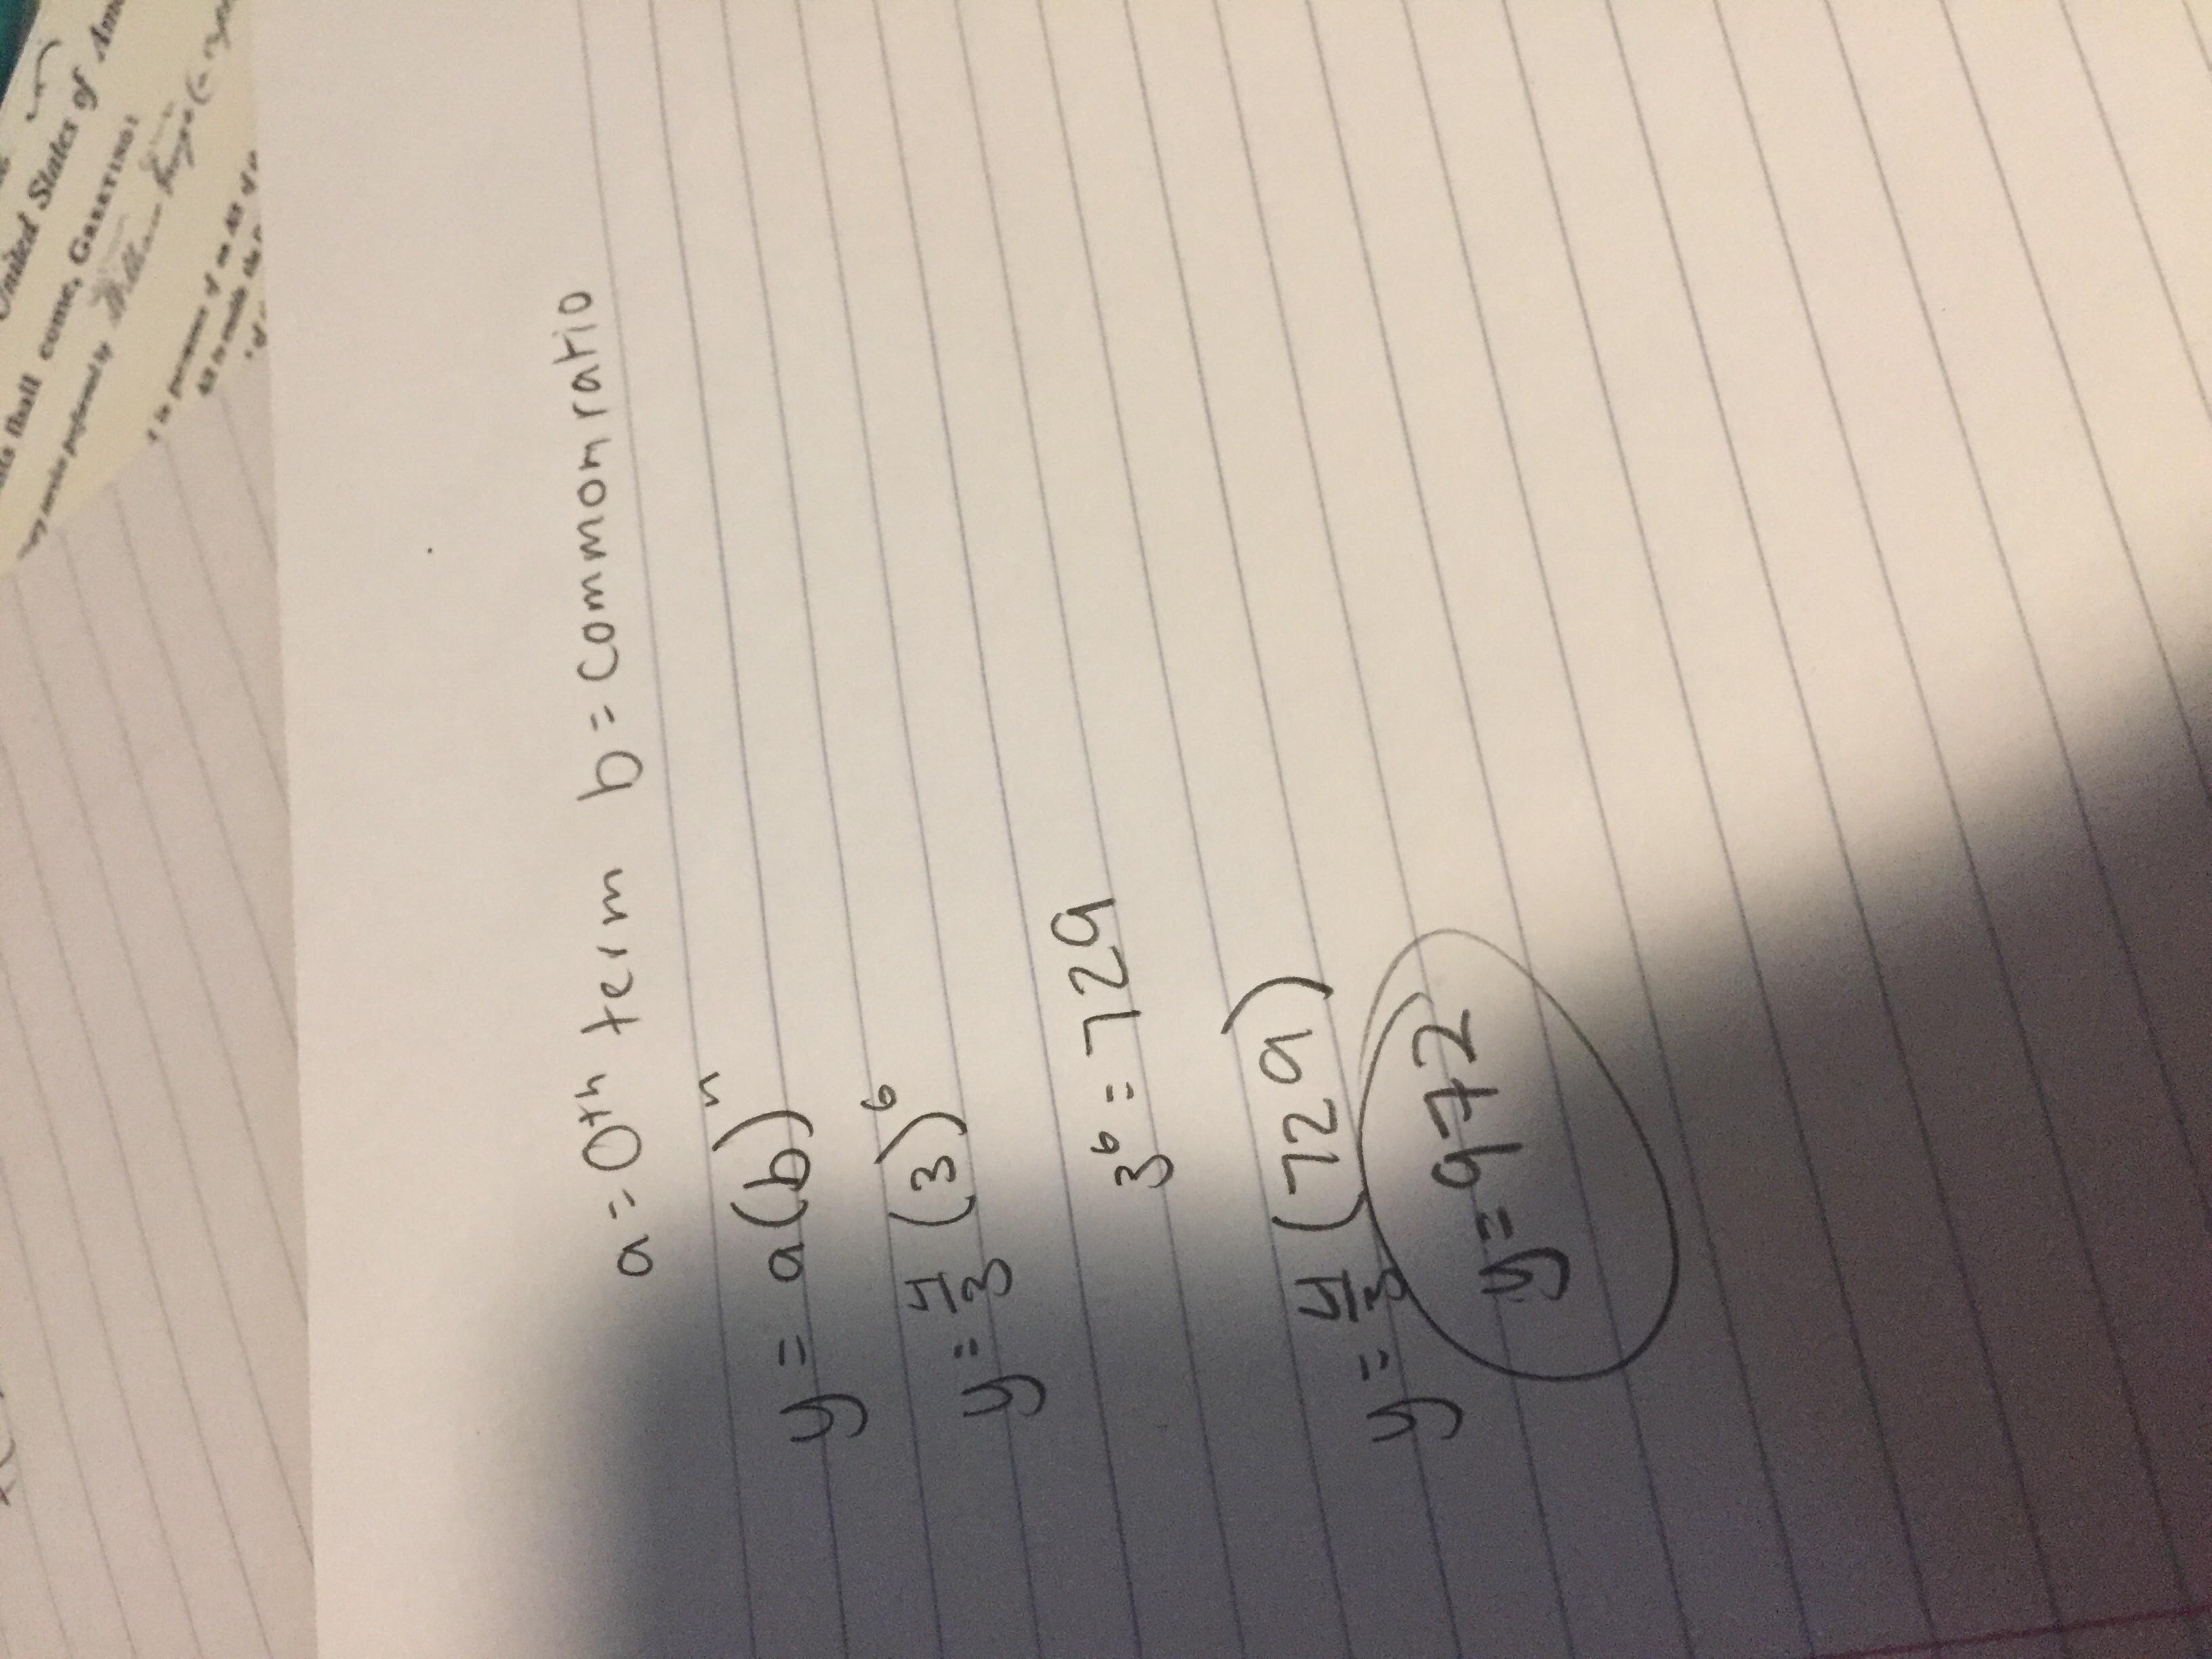 United States of Am
all come, GREETING:
a = 0th term b = common ratio
y = a(b)ⁿ
y = 4/3 (3)⁶
3⁶ = 729
y = 4/3 (729)
y = 972